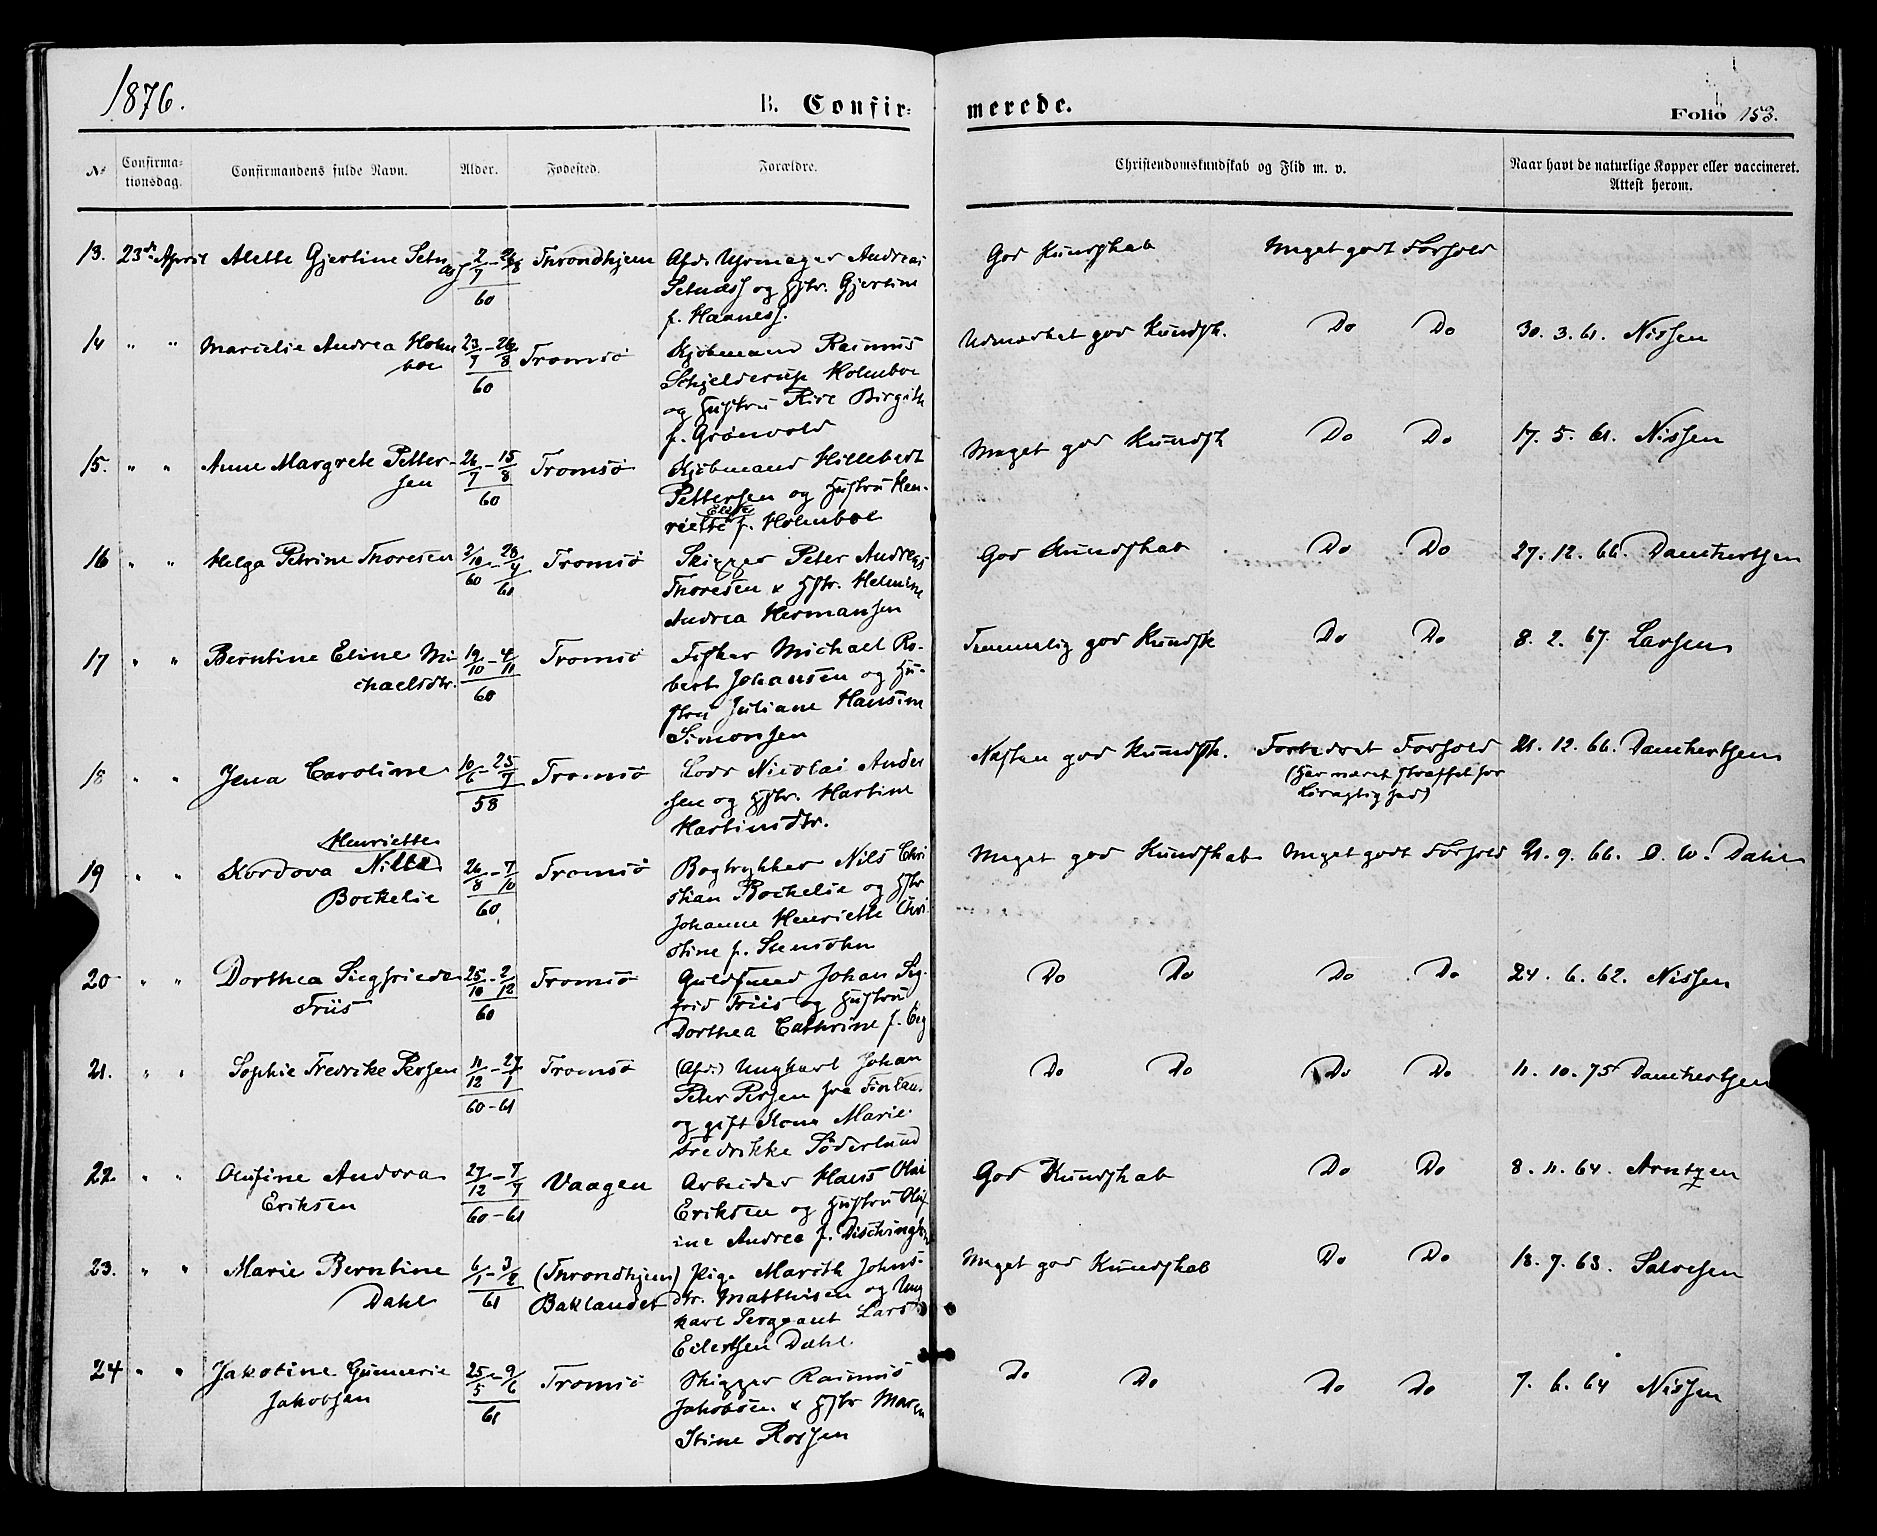 1876.
B. Confirmerede.
Folio 153.
No
Confirmationsdag.
Confirmandens fulde Navn.
Alder.
Fødested.
Forældre.
Christendomskundskab og Flid m. v.
Naar havt de naturlige Kopper eller vaccineret.
Attest herom.
13. 23de April Alette Gjertine Setnæss 2/7 - 26/8 60 Throndhjem
Afd. Uhrmager Andreas
Setnæss og Hstr. Gjertine
f. Haaness.
God Kundskab Meget godt Forhold
14 " " Marcelie Andrea Holmboe 23/7 - 26/8 60 Tromsö
Kjöbmand Rasmus
Schjelderup Holmboe
og Hustru Birgitte
f. Grönvold
Udmærket god Kundsk. Do Do 30. 3. 61. Nissen
15. " " Anne Margrete Pettersen 26/7 - 15/8 60 Tromsö
Kjöbmand Hillebert
Pettersen og Hustru Henriette
Elise
f. Holmboe
Meget god Kundsk Do Do 17. 5. 61. Nissen
16 " " Helga Petrine Thoresen 2/10 60 - 28/4 61 Tromsö
Skipper Peter Andreas
Thoresen & Hstr. Helmine
Andrea Hermansen
God Kundskab Do Do 27. 12. 66. Danchertsen
17 " " Berntine Eline Michaelsdtr. 19/10 - 4/11 60 Tromsö
Fisker Michael Robert
Johansen og Hustru
Juliane Hansine
Simonsen
Temmelig god Kundsk Do Do 8. 2. 67. Larsen
18 " " Jena Caroline 10/6 - 25/7 58 Tromsö
Lods Nicolai Andersen
og Hstr. Martine
Martinsdtr.
Næsten god Kundsk. Forbedret Forhold 21. 12. 66. Danchertsen
(Har været straffet for
Löragtighed)
19 " " Kordova Henriette Nilta
Bockelie 26/8 - 7/10 60 Tromsö
Bogtrykker Nils Christian
Bockelie og Hstr
Johanne Henriette Christine
f. Stensohn
Meget god Kundskab Meget godt Forhold 21. 9. 66. O. W. Dahl
20 " " Dorthea Siegfriede
Friis 25/10 - 2/12 60 Tromsö
Guldsmed Johan Sigfrid
Friis og Hustru
Dorthea Cathrine f.
Do Do Do Do 24. 6. 62. Nissen
21. " " Sophie Fredrike Persen 11/12 - 27/1 60-61 Tromsö
(Afd.) Ungkarl Johan
Peter Persen fra Finlan.
og gift Kone Marie
Fredrikke Söderlund
Do Do Do Do 11. 10. 75 Danchertsen
22 " " Olufine Andora
Eriksen 27/12 - 7/7 60-61 Vaagen
Arbeider Hans Olai
Eriksen og Hustru Olufine
Andrea f. Dischington
God Kundskab Do Do 8. 11. 64. Arntzen
23. " " Marie Berntine
Dahl 6/1 - 3/2 61 (Throndhjem)
Baklandet
Pige Marith Johnsdtr.
Matthisen og Ungkarl
Sergeant Lars
Eilertsen Dahl.
Meget god Kundskab Do Do 18. 7. 63. Salvesen
24 " " Jakobine Gunnerie
Jakobsen 25/5 - 9/6 61 Tromsö
Skipper Rasmus
Jakobsen & Hstr Maren
Stine Rossen
Do Do Do Do 7. 6. 64 Nissen